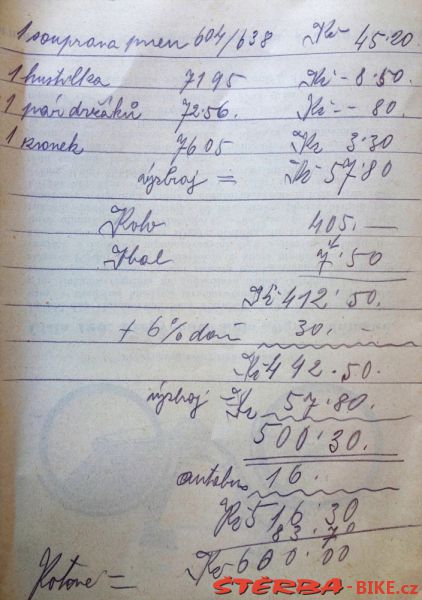 1 souprava pneu 604/638 Kč 45·20
1 hustilka 7195 Kč - 8·50.
1 pár držáků 7256. Kč -- 80.
1 zvonek 7605 Kč 3·30
výzbroj = Kč 57·80
Kolo 405.—
Obal 7·50
Kč 412·50.
+ 6% daň 30.—
Kč 442·50.
výzbroj = Kč 57·80.
500·30.
autobus 16.
Kč 516·30
83·70
Kč 600·00
Hotově =
ŠTĚRBA-BIKE.cz